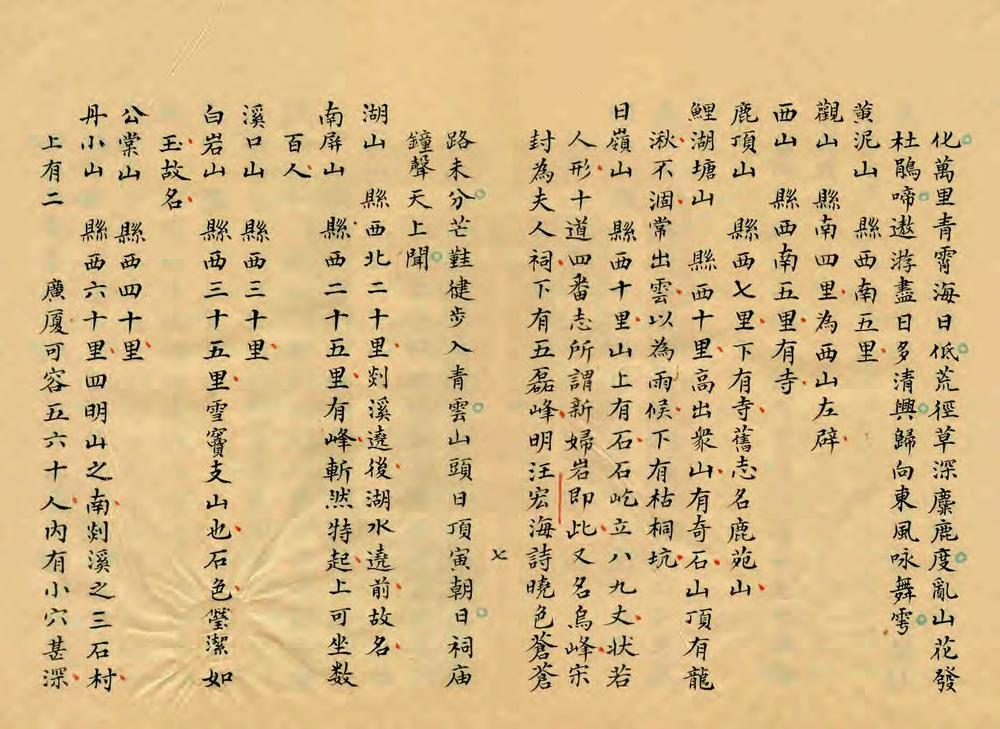 化萬里青霄海日低荒徑草深麋鹿度亂山花發
杜鵑啼遨游盡日多清興歸向東風咏舞雩
黄泥山　縣西南五里
觀山　縣南四里為西山左辟
西山　縣西南五里有寺
鹿頂山　縣西七里下有寺舊志名鹿苑山
鯉湖塘山　縣西十里高出衆山有奇石山頂有龍
湫不涸常出雲以為雨候下有枯桐坑
日嶺山　縣西十里山上有石石屹立八九丈狀若
人形十道四番志所謂新婦岩即此又名烏峰宗
封為夫人祠下有五磊峰明汪宏海詩曉色蒼蒼
七
路未分芒鞋徤步入青雲山頭日頂寅朝日祠庙
鐘聲天上聞
湖山　縣西北二十里剡溪遶後湖水遶前故名
南屏山　縣西二十五里有峰斬然特起上可坐数
百人
溪口山　縣西三十里
白岩山　縣西三十五里雪竇支山也石色瑩潔如
玉故名
公棠山　縣西四十里
丹小山　縣西六十里四明山之南剡溪之三石村
上有二　廣厦可容五六十人内有小穴甚深